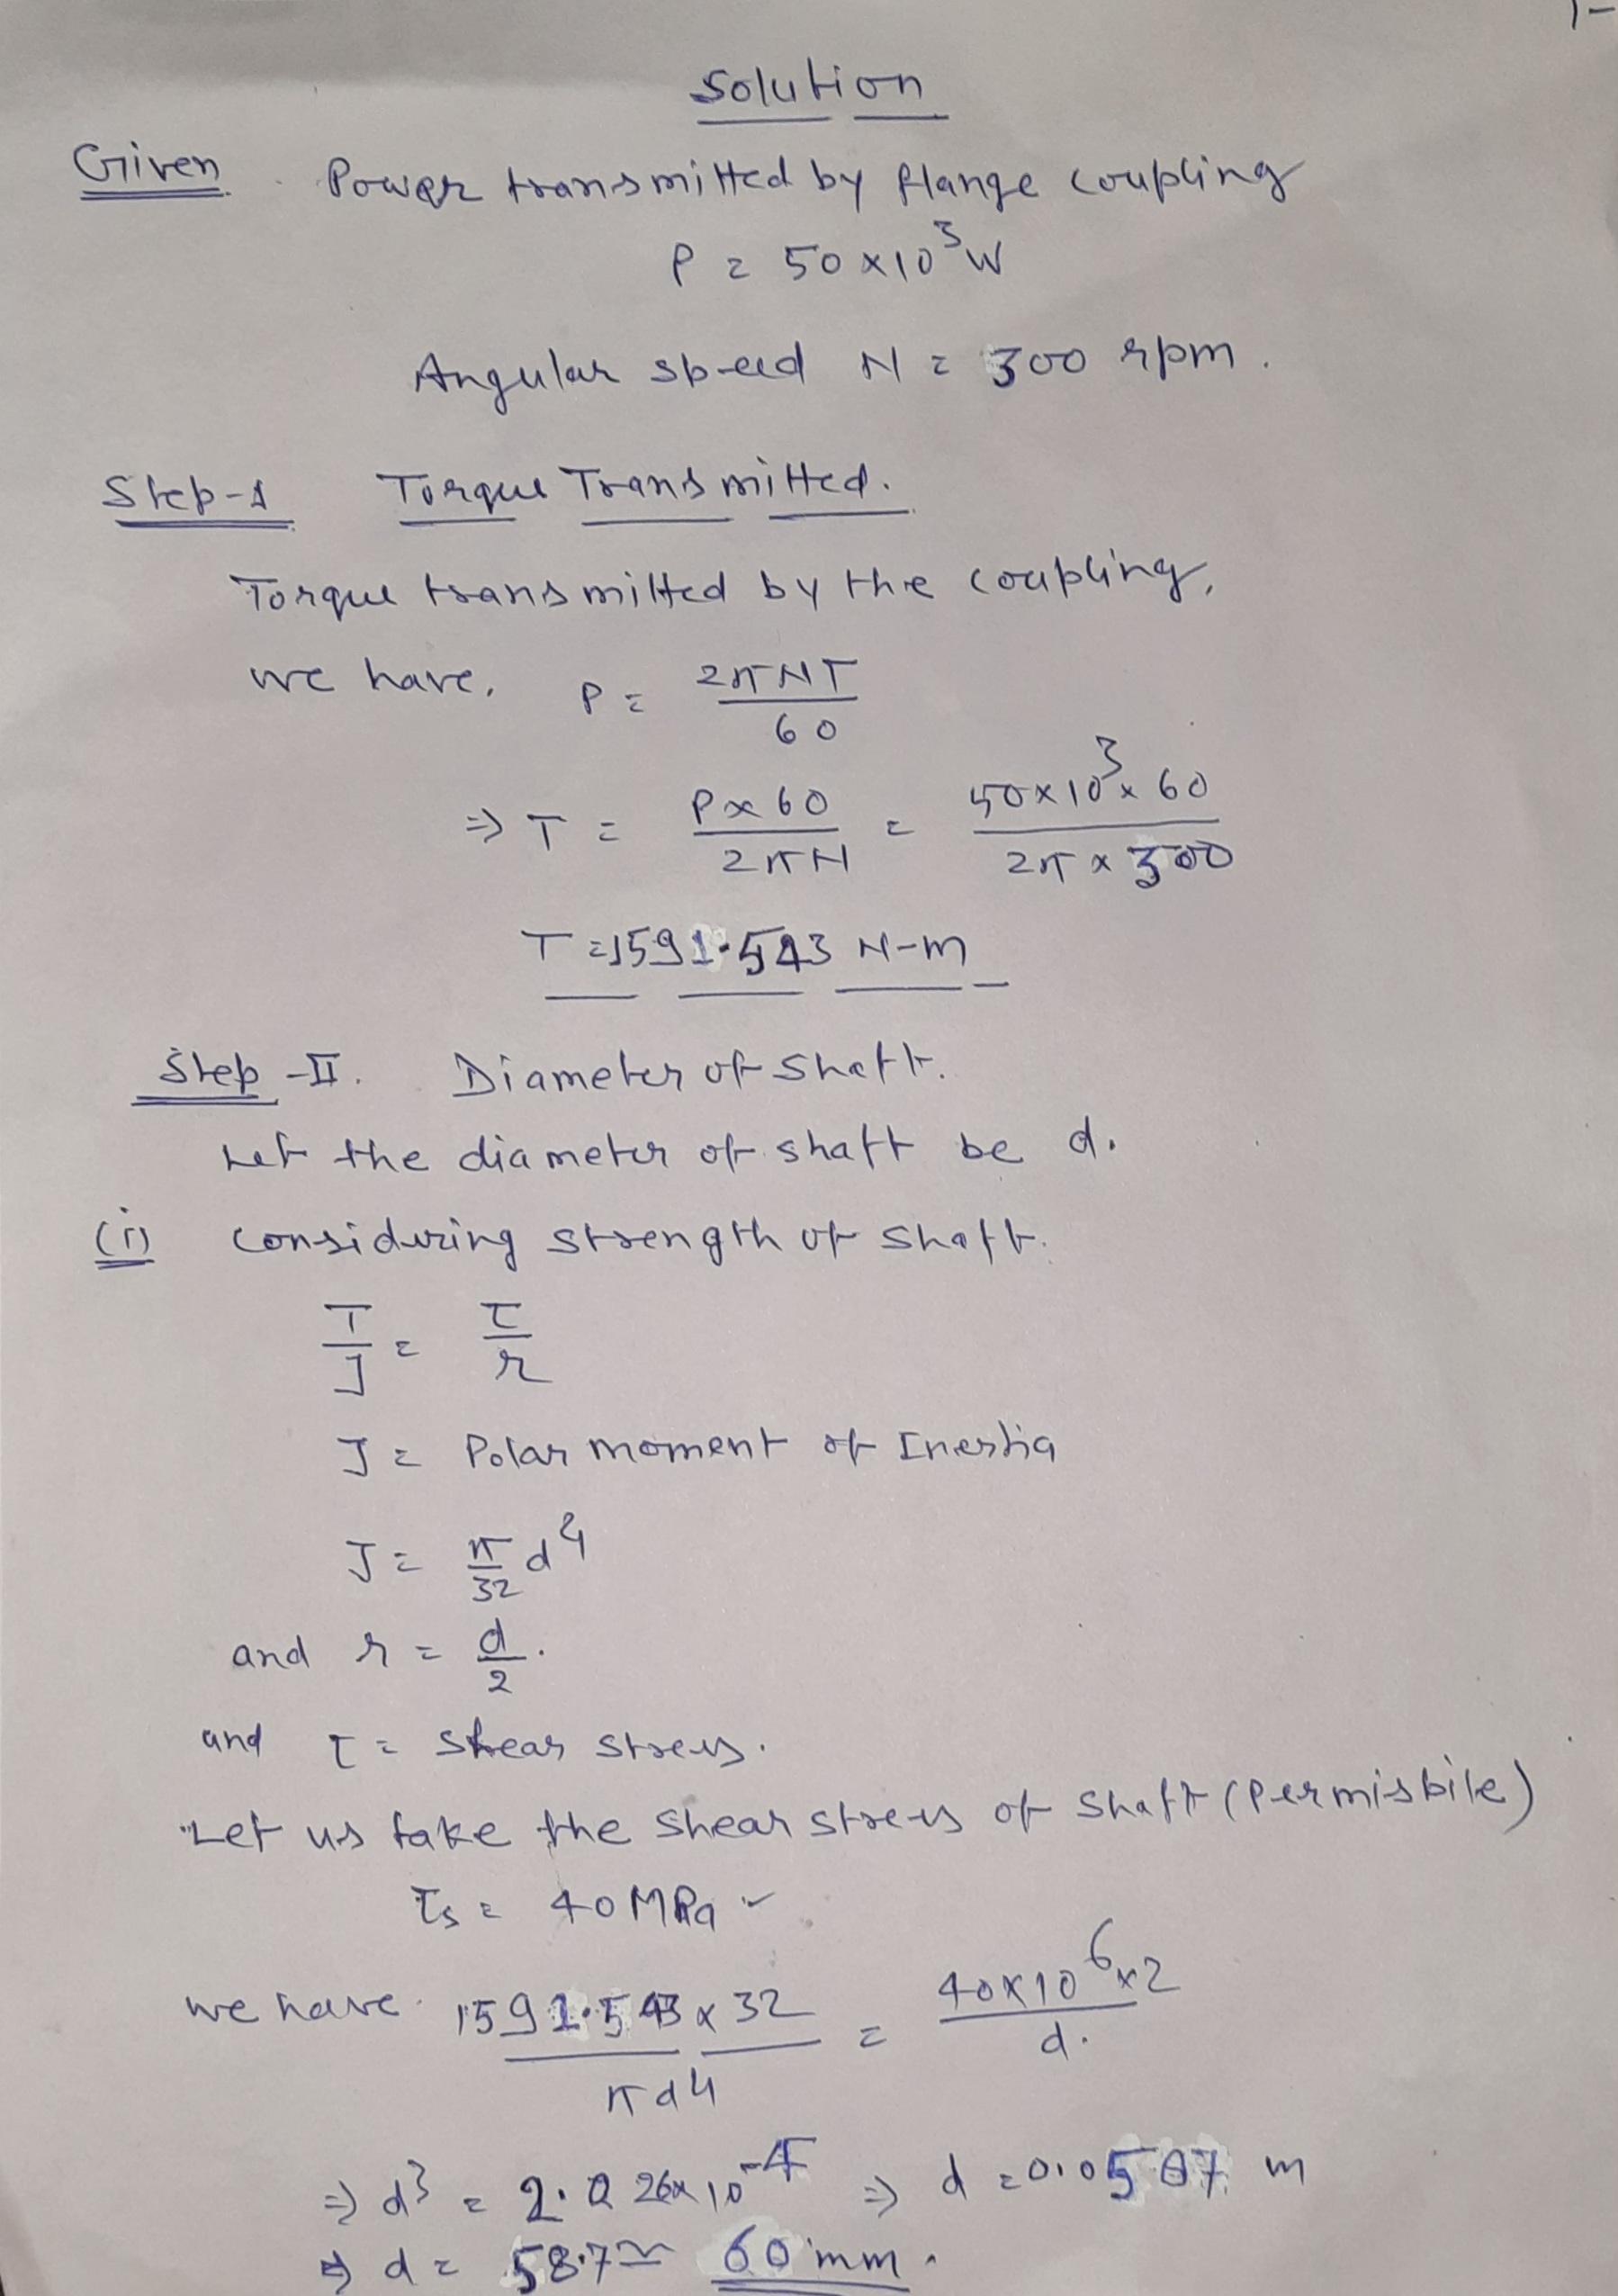 Solution
Given Power transmitted by flange coupling
P = 50×10³W
Angular speed N = 300 rpm.
Step-1 Torque Transmitted.
Torque transmitted by the coupling,
we have, P = 2πNT/60
⇒ T = P×60/2πN = 50×10³×60/2π×300
T = 1591.543 N-m
Step-II. Diameter of shaft.
Let the diameter of shaft be d.
(i) considering strength of shaft.
T/J = τ/r
J = Polar moment of Inertia
J = π/32 d⁴
and r = d/2.
and τ = shear stress.
Let us take the shear stress of shaft (permissbile)
τs = 40 MPa
we have 1591.543×32/πd⁴ = 40×10⁶×2/d.
⇒ d³ = 2.026×10⁻⁴ ⇒ d = 0.0587 m
⇒ d = 58.7 ≃ 60 mm.